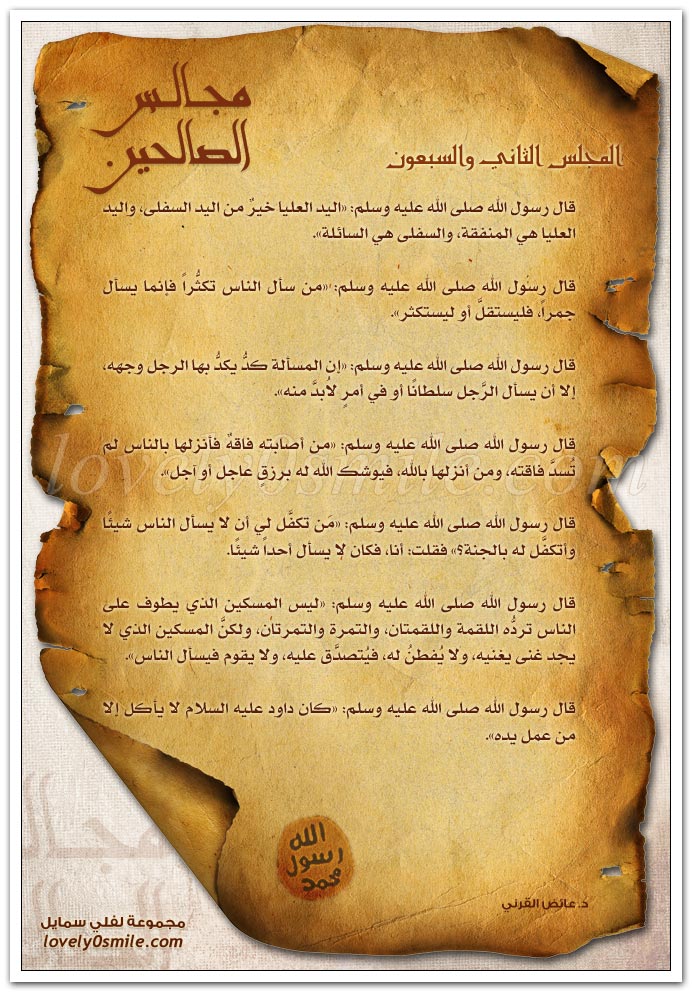 مجالس
الصالحين
المجلس الثاني والسبعون
قال رسول الله صلى الله عليه وسلم: «اليد العليا خيرٌ من اليد السفلى، واليد
العليا هي المنفقة، والسفلى هي السائلة».
قال رسول الله صلى الله عليه وسلم: «من سأل الناس تكثُّراً فإنما يسأل
جمراً، فليستقلَّ أو ليستكثر».
قال رسول الله صلى الله عليه وسلم: «إن المسألة كدٌّ يكدُّ بها الرجل وجهه،
إلا أن يسأل الرَّجل سلطانًا أو في أمرٍ لابدَّ منه».
قال رسول الله صلى الله عليه وسلم: «من أصابته فاقةٌ فأنزلها بالناس لم
تُسدَّ فاقته، ومن أنزلها بالله، فيوشك الله له برزقٍ عاجل أو آجل».
قال رسول الله صلى الله عليه وسلم: «مَن تكفَّل لي أن لا يسأل الناس شيئًا
وأتكفَّل له بالجنة؟» فقلت: أنا، فكان لا يسأل أحداً شيئًا.
قال رسول الله صلى الله عليه وسلم: «ليس المسكين الذي يطوف على
الناس تردُّه اللقمة واللقمتان، والتمرة والتمرتان، ولكنَّ المسكين الذي لا
يجد غنى يغنيه، ولا يُفطنُ له، فيُتصدَّق عليه، ولا يقوم فيسأل الناس».
قال رسول الله صلى الله عليه وسلم: «كان داود عليه السلام لا يأكل إلا
من عمل يده».
lovely0smile.com
الله
رسول
محمد
د.عائض القرني
مجموعة لفلي سمايل
lovely0smile.com